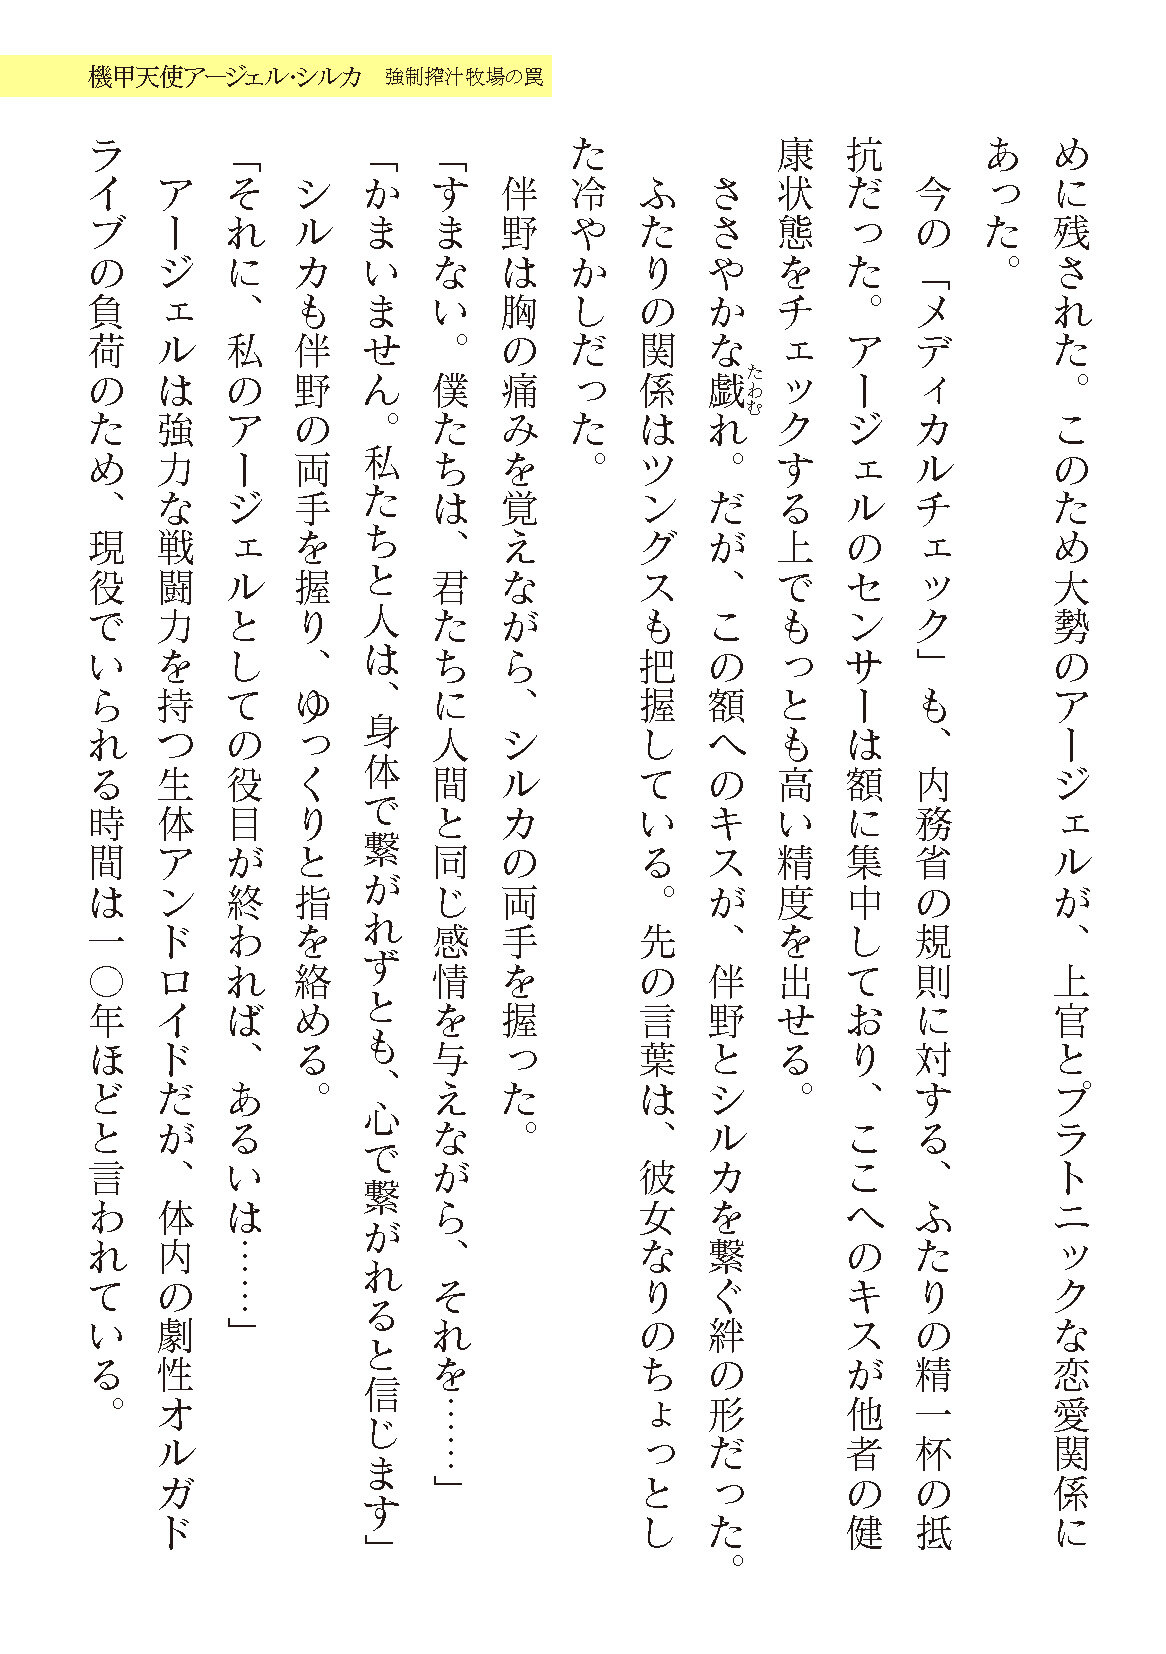 機甲天使アージェル・シルカ　強制搾汁牧場の罠
めに残された。このため大勢のアージェルが、上官とプラトニックな恋愛関係に
あった。
　今の「メディカルチェック」も、内務省の規則に対する、ふたりの精一杯の抵
抗だった。アージェルのセンサーは額に集中しており、ここへのキスが他者の健
康状態をチェックする上でもっとも高い精度を出せる。
　ささやかな戯たわむれ。だが、この額へのキスが、伴野とシルカを繋ぐ絆の形だった。
　ふたりの関係はツングスも把握している。先の言葉は、彼女なりのちょっとし
た冷やかしだった。
　伴野は胸の痛みを覚えながら、シルカの両手を握った。
「すまない。僕たちは、君たちに人間と同じ感情を与えながら、それを……」
「かまいません。私たちと人は、身体で繋がれずとも、心で繋がれると信じます」
　シルカも伴野の両手を握り、ゆっくりと指を絡める。
「それに、私のアージェルとしての役目が終われば、あるいは……」
　アージェルは強力な戦闘力を持つ生体アンドロイドだが、体内の劇性オルガド
ライブの負荷のため、現役でいられる時間は一〇年ほどと言われている。